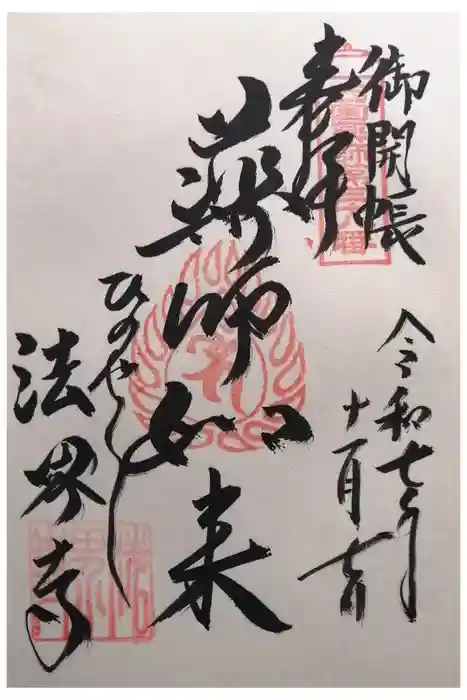 御開帳
奉拝
令和七年
十一月七日
薬師如来
ひのやくし
法界寺